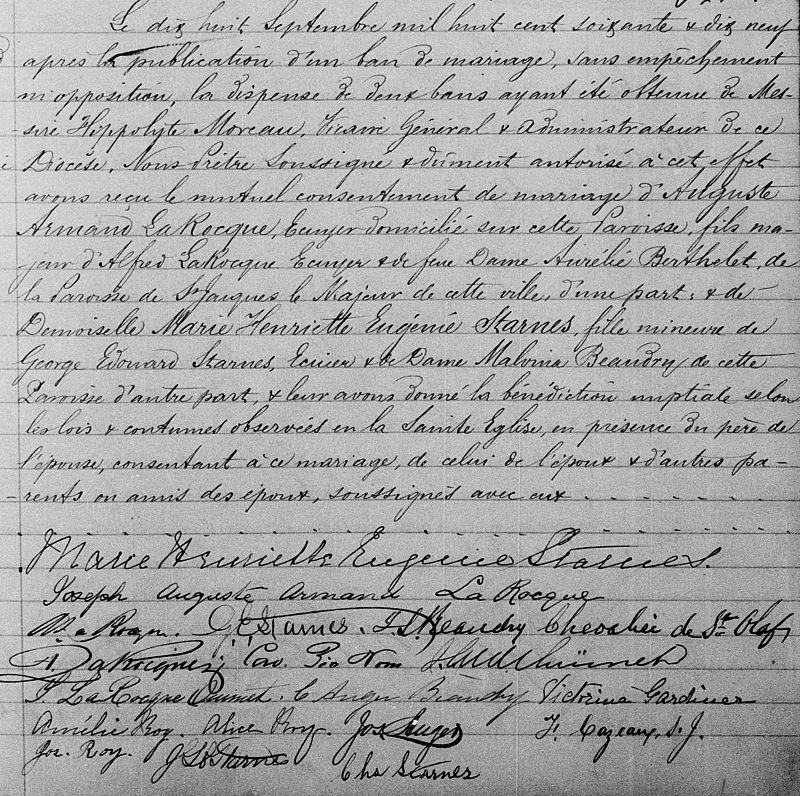 Le dix huit Septembre mil huit cent soixante & dix neuf
après la publication d'un ban de mariage, sans empêchement
ni opposition, la dispense de deux bans ayant été obtenue de Mes-
-sire Hippolyte Moreau, Vicaire Général & Administrateur de ce
Diocèse, Nous Prêtre Soussigné & dûment autorisé à cet effet
avons reçu le mutuel consentement de mariage d'Auguste
Armand LaRocque, Ecuyer domicilié sur cette Paroisse, fils ma-
jeur d'Alfred LaRocque Ecuyer & de feue Dame Aurélie Berthelet, de
la Paroisse de St Jacques le Majeur de cette ville, d'une part; & de
Demoiselle Marie Henriette Eugénie Starnes, fille mineure de
George Edouard Starnes, Ecuier & de Dame Malvina Beaudry de cette
Paroisse d'autre part, & leur avons donné la bénédiction nuptiale selon
les lois & coutumes observées en la Sainte Eglise, en présence du père de
l'épouse, consentant à ce mariage, de celui de l'époux & d'autres pa-
-rents ou amis des époux, soussignés avec eux
Marie Henriette Eugénie Starnes.
Joseph Auguste Armand LaRocque
G E Starnes. Beaudry Chevalier de St Olaf
Cav. Pio Nono
LaRocque Beaudry Victorine Gardiner
Amélie Roy. Alice Roy. F. Cazeaux, S. J.
Jos. Roy. Starnes
Chs Starnes